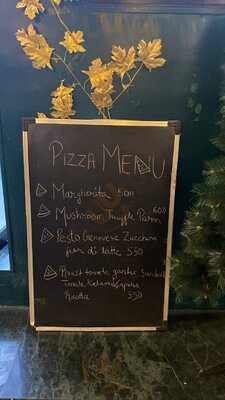 PIZZA MENU
Margherita 500
Mushroom Truffle Parm 600
Pesto Genovese Zucchini
fior di latte 550
Roast tomato garlic
Tomato Kalamata
Ricotta 550